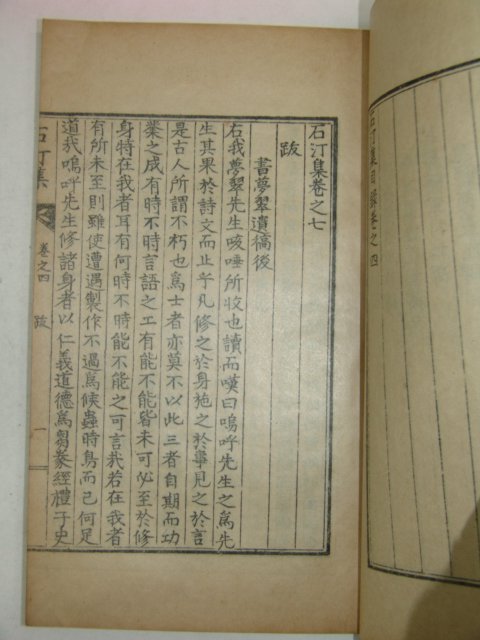 石汀集卷之七
跋
書夢翠遺稿後
右我夢翠先生咳唾所收也讀而嘆曰嗚呼先生之爲先
生其果於詩文而止乎凡修之於身施之於事見之於言
是古人所謂不朽也爲士者亦莫不以此三者自期而功
業之成有時不時言語之工有能不能皆未可必至於修
身特在我者耳有何時不時能不能之可言我若在我者
有所未至則雖使遭遇製作不過爲候蟲時鳥而已何足
道我嗚呼先生修諸身者以仁義道德爲芻豢經禮子史
石汀集
卷之四
跋
一
石汀集目錄卷之四